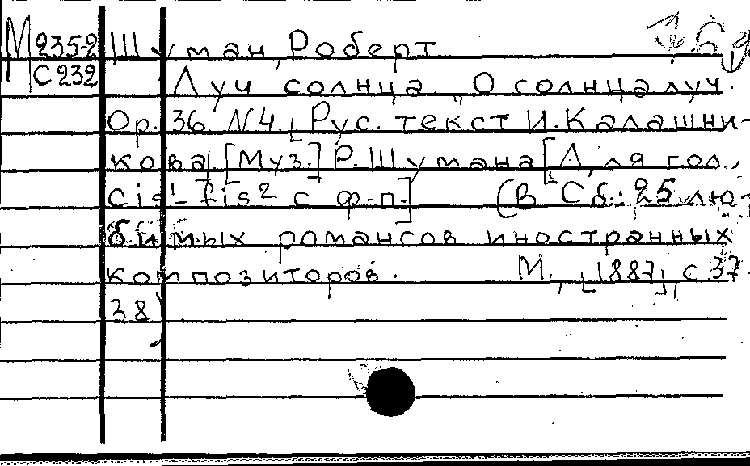 М 235-2 Шуман, Роберт
С 232 Луч солнца "О солнца луч.
Op. 36 N4, Рус. текст И. Калашни-
кова. [Муз.] Р. Шумана [Для гол.,
cis¹-fis² с ф-п.] (В Сб.: 25 лю-
бимых романсов иностранных
композиторов. М., [1887], с 37-
38)